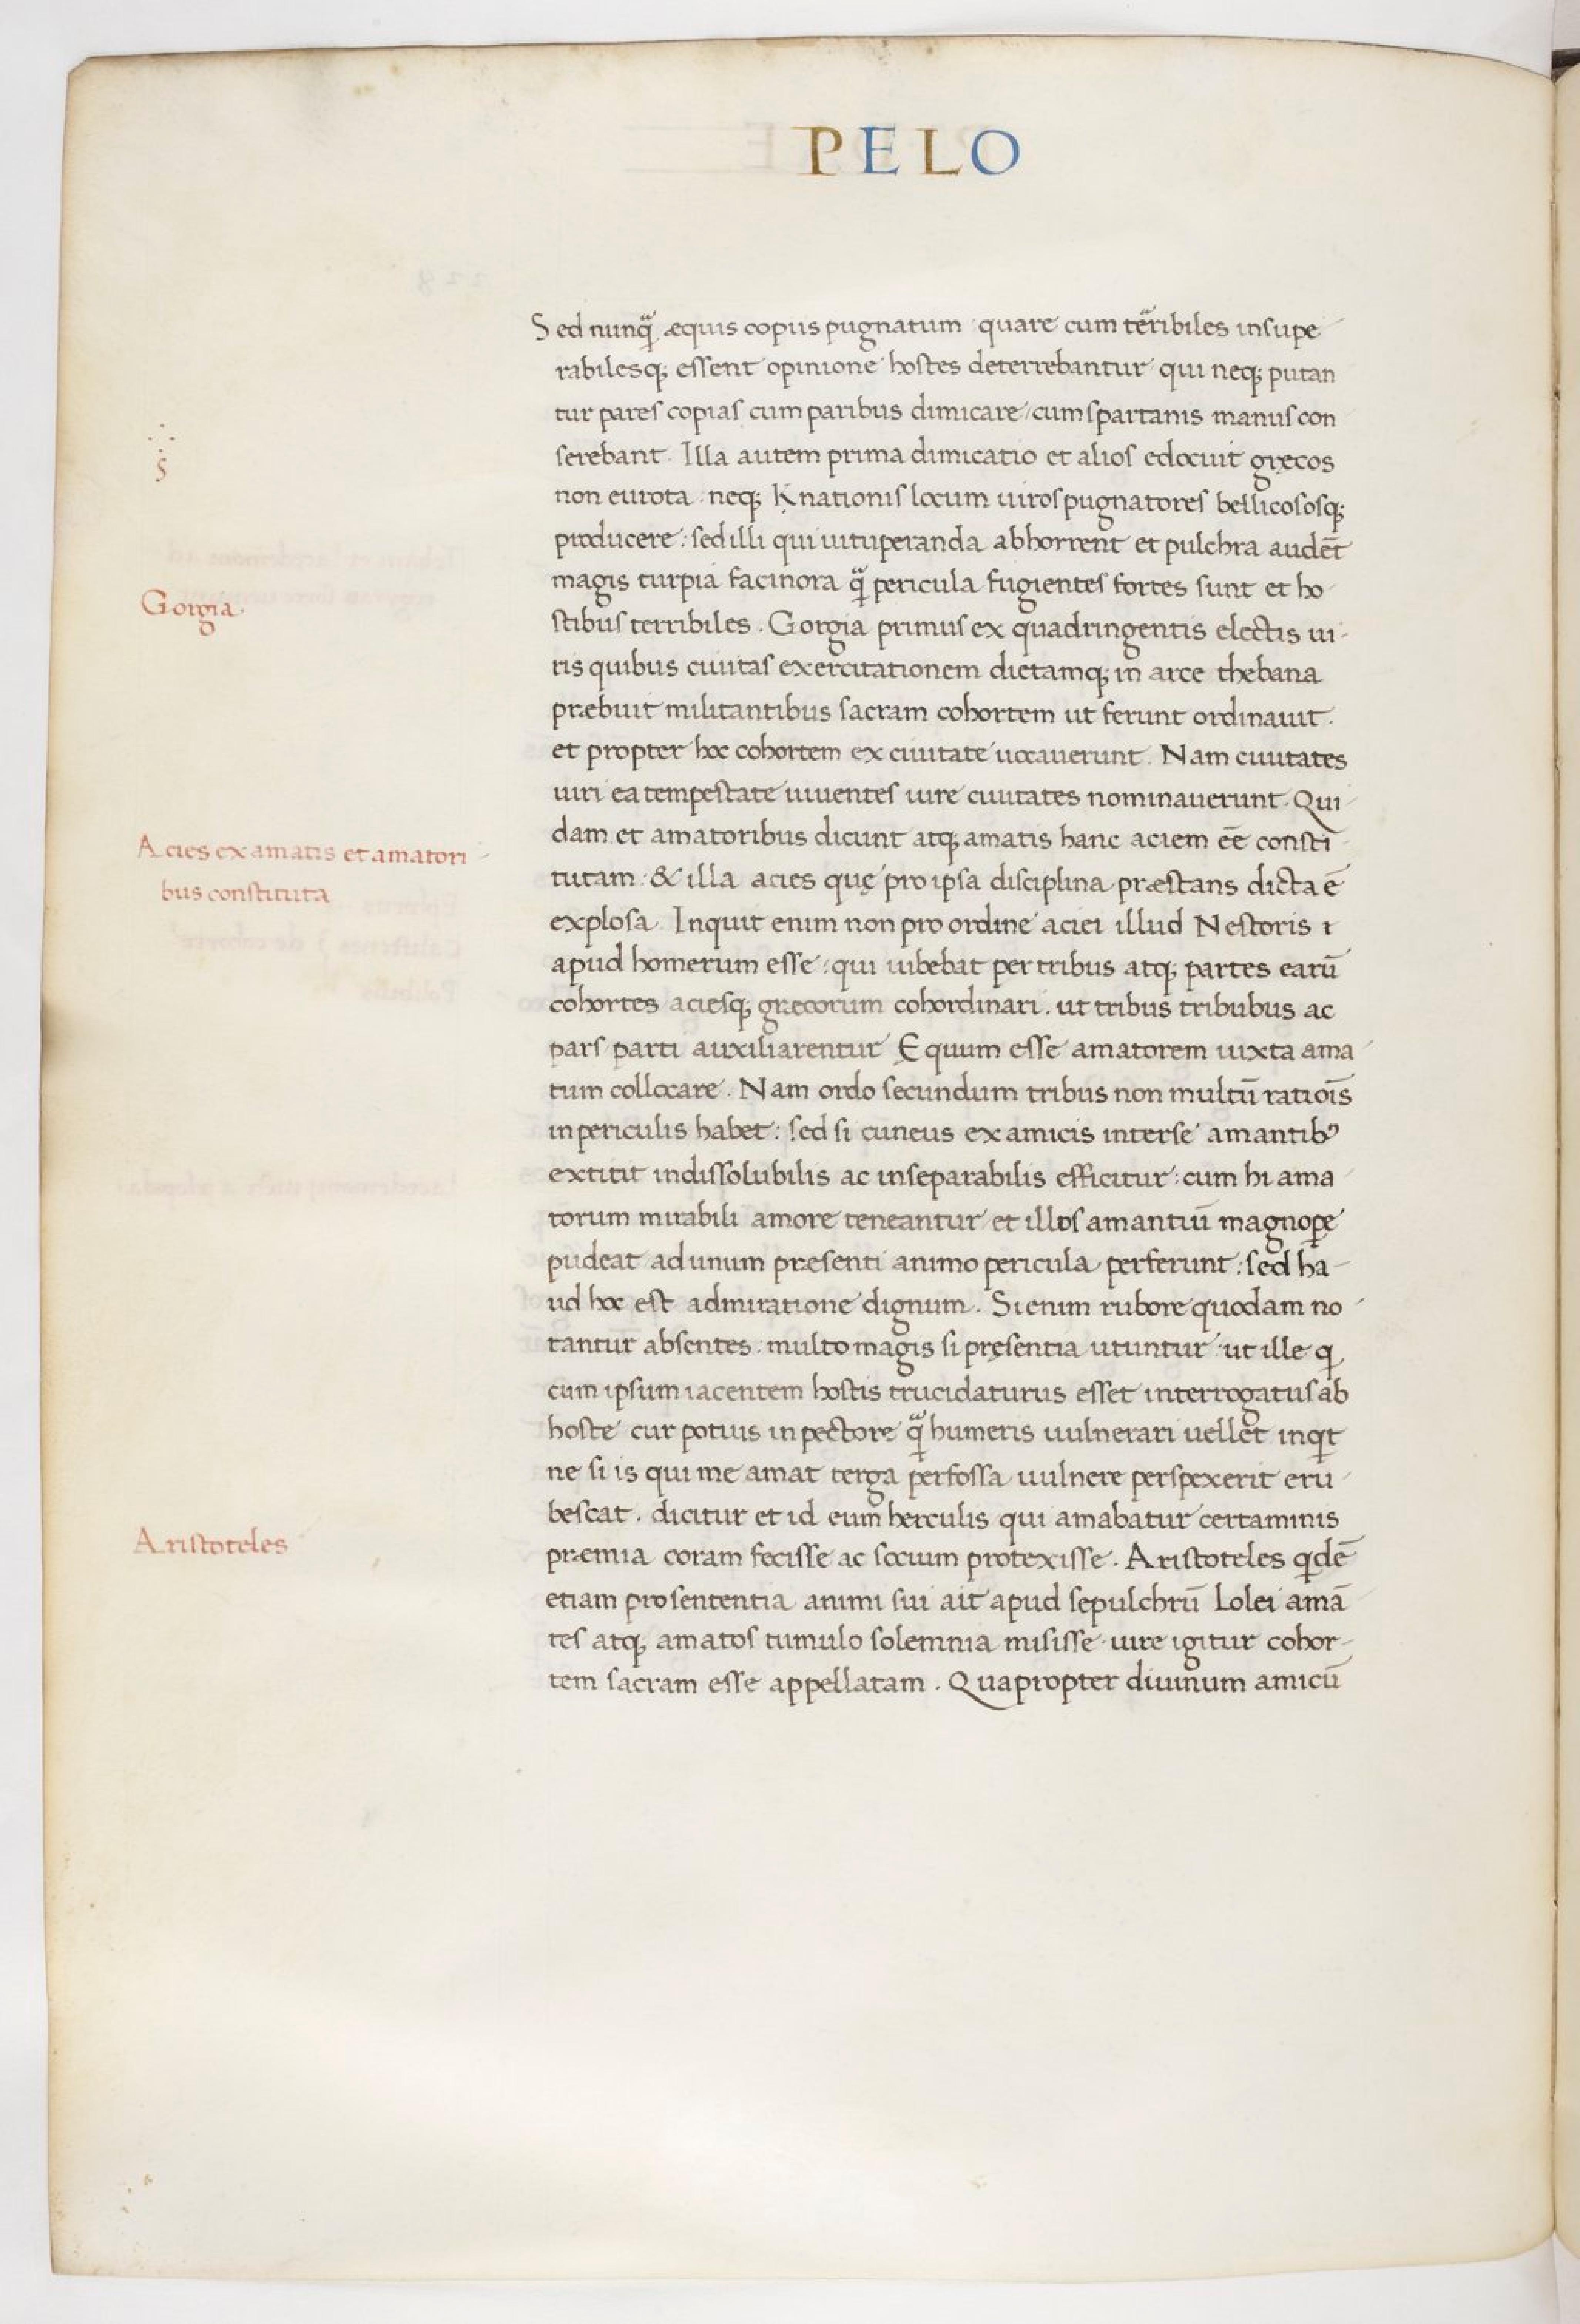 PELO
Sed nunq̃ æquis copiis pugnatum quare cum terribiles insupe
rabilesq; essent opinione hostes deterrebantur qui neq; putan
tur pares copias cum paribus dimicare / cum spartanis manus con
serebant. Illa autem prima dimicatio et alios edocuit gręcos
non eurota neq; Knationis locum uiros pugnatores bellicososq;
producere: sed illi qui uituperanda abhorrent et pulchra audēt
Gorgia.
magis turpia facinora q̃ pericula fugientes fortes sunt et ho
stibus terribiles. Gorgia primus ex quadringentis electis ui-
ris quibus ciuitas exercitationem dietamq; in arce thebana
præbuit militantibus sacram cohortem ut ferunt ordinauit.
et propter hoc cohortem ex ciuitate uocauerunt. Nam ciuitates
uiri ea tempestate uiuentes iure ciuitates nominauerunt. Qui
Acies ex amatis et amatori-
bus constituta
dam et amatoribus dicunt atq; amatis hanc aciem ēē consti
tutam: & illa acies quę pro ipsa disciplina præstans dicta ē
explosa. Inquit enim non pro ordine aciei illud Nestoris
apud homerum esse: qui iubebat per tribus atq; partes earū
cohortes aciesq; græcorum cohordinari. ut tribus tribubus ac
pars parti auxiliarentur Ęquum esse amatorem iuxta ama
tum collocare. Nam ordo secundum tribus non multū ratiōis
in periculis habet: sed si cuneus ex amicis inter se amantibꝰ
extitit indissolubilis ac inseparabilis efficitur: cum hi ama
torum mirabili amore teneantur et illos amantiū magnope
pudeat ad unum præsenti animo pericula perferunt: sed ha-
ud hoc est admiratione dignum. Si enim rubore quodam no
tantur absentes. multo magis si pręsentia utuntur: ut ille q
cum ipsum iacentem hostis trucidaturus esset interrogatus ab
hoste cur potius in pectore q̃ humeris uulnerari uellet inqt
ne si is qui me amat terga perfossa uulnere perspexerit eru
bescat. dicitur et id eum herculis qui amabatur certaminis
Aristoteles
præmia coram fecisse ac socium protexisse. Aristoteles qdē
etiam pro sententia animi sui ait apud sepulchrū Lolei amā
tes atq; amatos tumulo solemnia misisse. iure igitur cohor-
tem sacram esse appellatam. Quapropter diuinum amicū